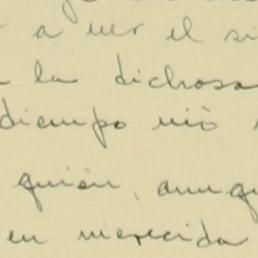 a ver el si
la dichosa
diempo vió
quién, aunq
en merecida